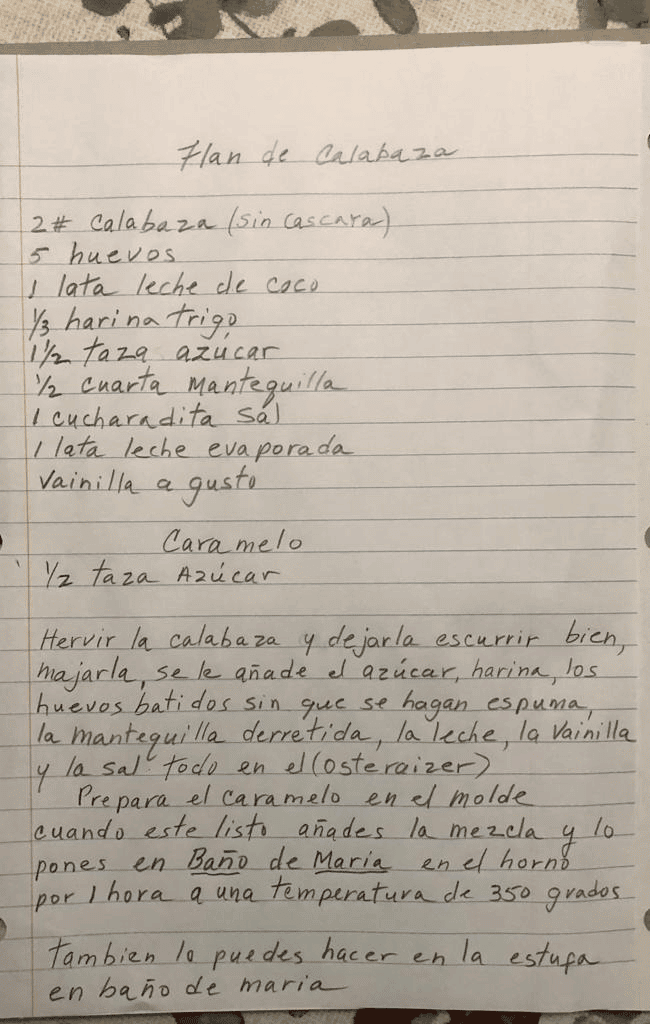 Flan de Calabaza
2# Calabaza (sin cascara)
5 huevos
1 lata leche de coco
1/3 harina trigo
1 1/2 taza azúcar
1/2 cuarta mantequilla
1 cucharadita sal
1 lata leche evaporada
Vainilla a gusto
Caramelo
1/2 taza Azúcar
Hervir la calabaza y dejarla escurrir bien,
majarla, se le añade el azúcar, harina, los
huevos batidos sin que se hagan espuma,
la mantequilla derretida, la leche, la Vainilla
y la sal todo en el (osteraizer)
Prepara el caramelo en el molde
cuando este listo añades la mezcla y lo
pones en Baño de Maria en el horno
por 1 hora a una temperatura de 350 grados
Tambien lo puedes hacer en la estufa
en baño de maria